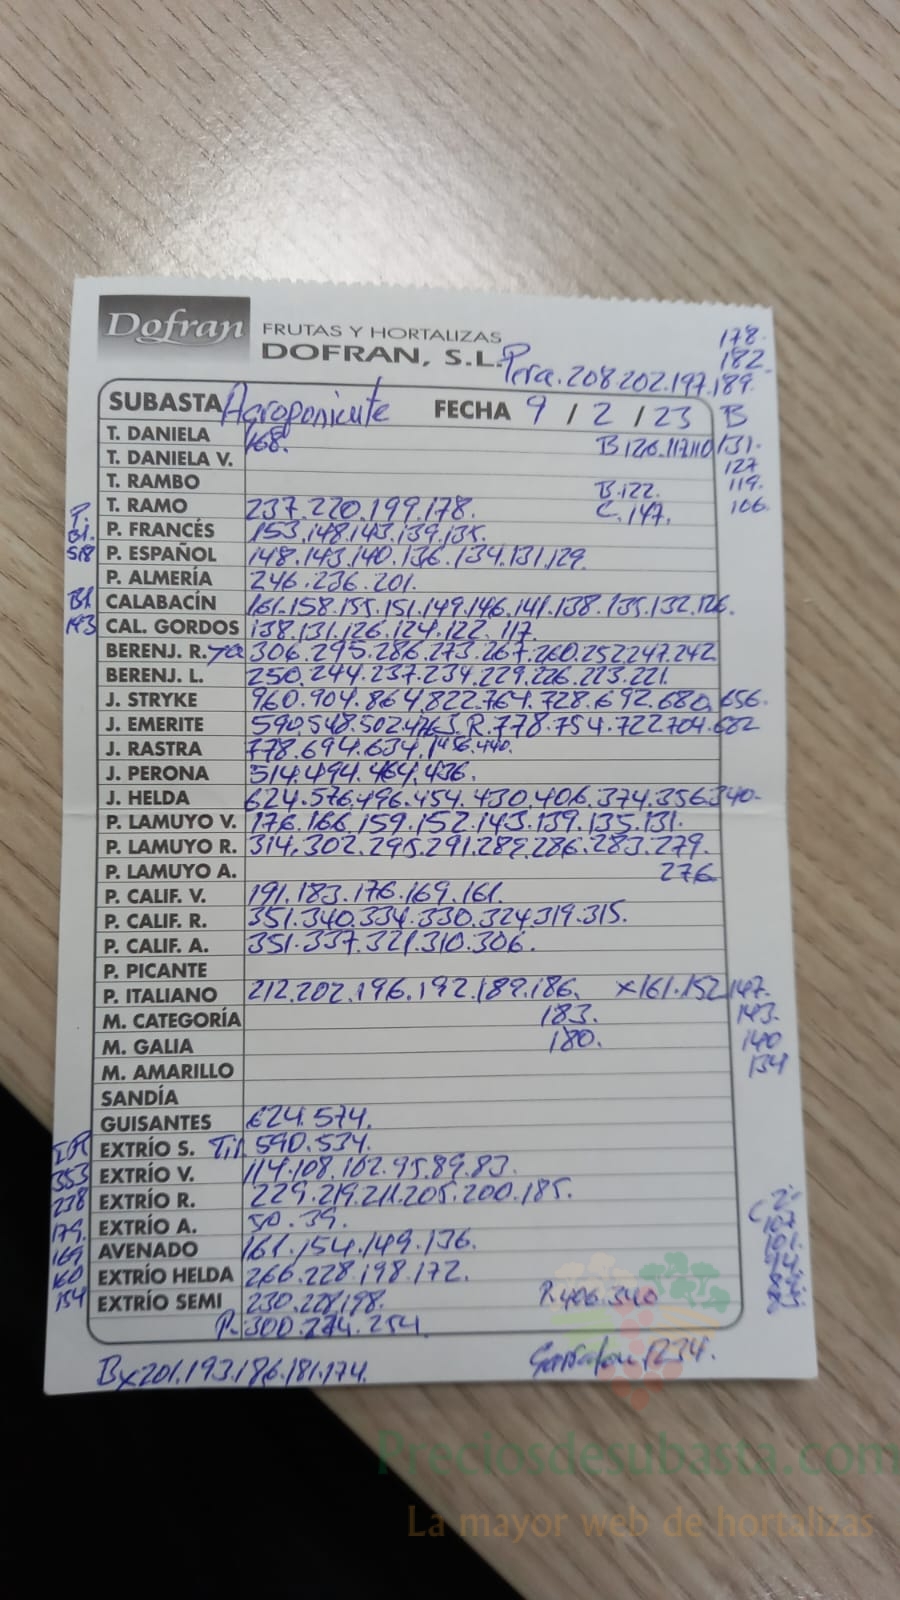 Dofran FRUTAS Y HORTALIZAS
DOFRAN, S.L.
178.
182.
Pera.208 202.197.189.
SUBASTA Agroponiente FECHA 9 / 2 / 23 B
T. DANIELA 168. B.126.117.110 131.
T. DANIELA V. 127
T. RAMBO B.122. 119.
T. RAMO 237.220.199.178. C.147. 106.
P. FRANCÉS 153.148.143.139.135.
P. ESPAÑOL 148.143.140.136.134.131.129.
P. ALMERÍA 246.236.201.
CALABACÍN 161.158.155.151.149.146.141.138.135.132.126.
CAL. GORDOS 138.131.126.124.122.117.
BERENJ. R. 306.295.286.273.267.260.252.247.242
BERENJ. L. 250.244.237.234.229.226.223.221.
J. STRYKE 960.904.864.822.764.728.692.680.656.
J. EMERITE 590.548.502.463.R.778.754.722.704.682
J. RASTRA 778.694.634.
J. PERONA 514.494.464.436.
J. HELDA 624.576.496.454.430.406.374.356.340.
P. LAMUYO V. 176.166.159.152.143.139.135.131.
P. LAMUYO R. 314.302.295.291.289.286.283.279.
P. LAMUYO A. 276
P. CALIF. V. 191.183.176.169.161.
P. CALIF. R. 351.340.334.330.324.319.315.
P. CALIF. A. 351.337.321.310.306.
P. PICANTE
P. ITALIANO 212.202.196.192.189.186. x161.152.147.
M. CATEGORÍA 183. 143.
M. GALIA 180. 140
M. AMARILLO 134
SANDÍA
GUISANTES 624.574.
EXTRÍO S. 590.534.
EXTRÍO V. 114.108.102.95.89.83.
353
EXTRÍO R. 229.219.211.205.200.185.
238
EXTRÍO A. 50.39.
179.
AVENADO 161.154.149.136.
169
EXTRÍO HELDA 266.228.198.172.
160
EXTRÍO SEMI 230.221.198. R.406.340
154
P.300.274.254.
Bx201.193.186.181.174. 1234.
Preciosdesubasta.com
La mayor web de hortalizas